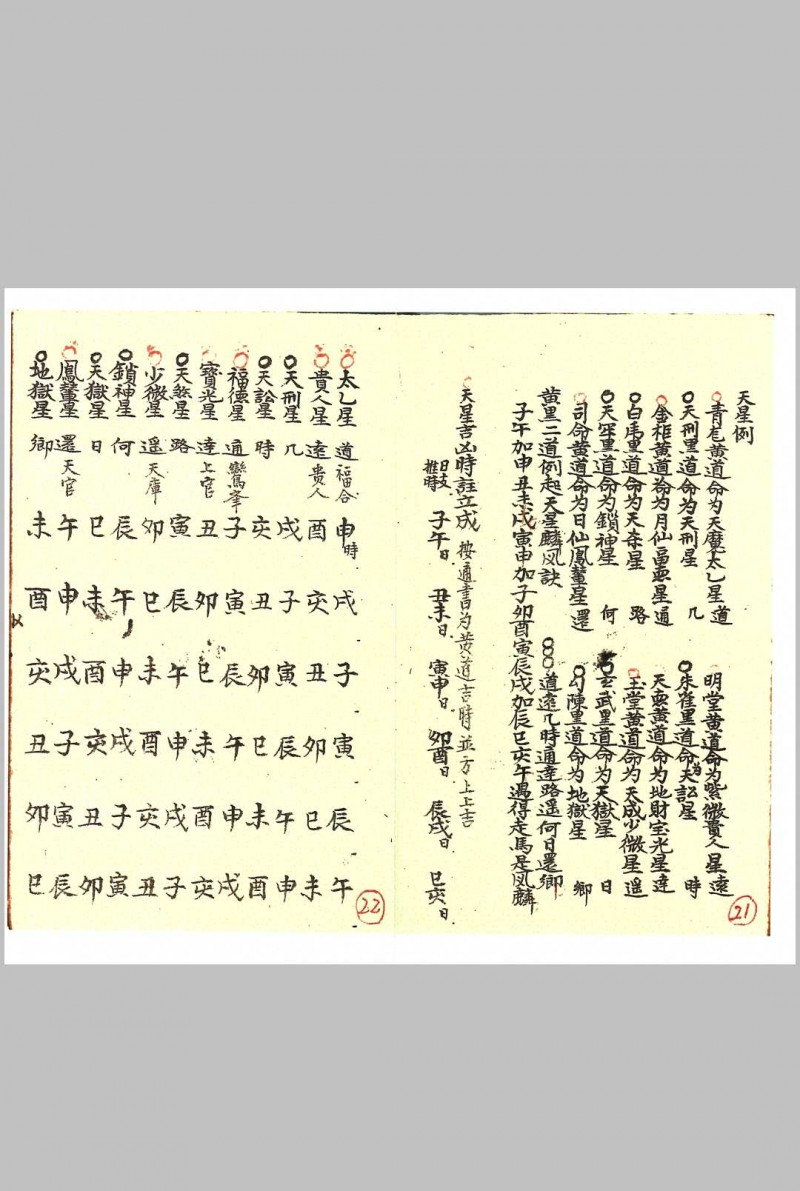 天星例
青龙黄道命为天魔太乙星 道 明堂黄道命为紫微貴人星 遠
天刑黑道命为天刑星 几 朱雀黑道命为天訟星 時
金柜黄道命为月仙福德星 通 天德黄道命为地財宝光星 達
白虎黑道命为天杀星 路 玉堂黄道命为天成少微星 遥
天牢黑道命为鎖神星 何 玄武黑道命为天獄星 日
司命黄道命为日仙鳳輦星 還 勾陳黑道命为地獄星 鄉
黄黑二道例起天星麟凤訣 道遠几時通達路遥何日還鄉
子午加申丑未戌寅申加子卯酉寅辰戌加辰巳亥午遇得走馬是凤麟
天星吉凶時註立成 按通書为黄道吉時並方上上吉
日支推時 子午日 丑未日 寅申日 卯酉日 辰戌日 巳亥日
21
太乙星 道 福合 申時 戌 子 寅 辰 午
貴人星 遠 貴人 酉 亥 丑 卯 巳 未
天刑星 几 戌 子 寅 辰 午 申
天訟星 時 亥 丑 卯 巳 未 酉
福德星 通 鸞峯 子 寅 辰 午 申 戌
寶光星 達 上官 丑 卯 巳 未 酉 亥
天煞星 路 寅 辰 午 申 戌 子
少微星 遥 天庫 卯 巳 未 酉 亥 丑
鎖神星 何 辰 午 申 戌 子 寅
天獄星 日 巳 未 酉 亥 丑 卯
鳳輦星 還 天官 午 申 戌 子 寅 辰
地獄星 鄉 未 酉 亥 丑 卯 巳
22